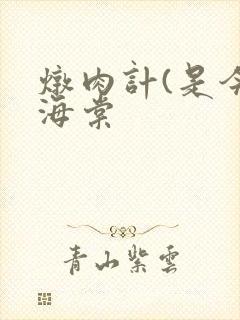 燉肉計(是今
海棠
青山紫雲